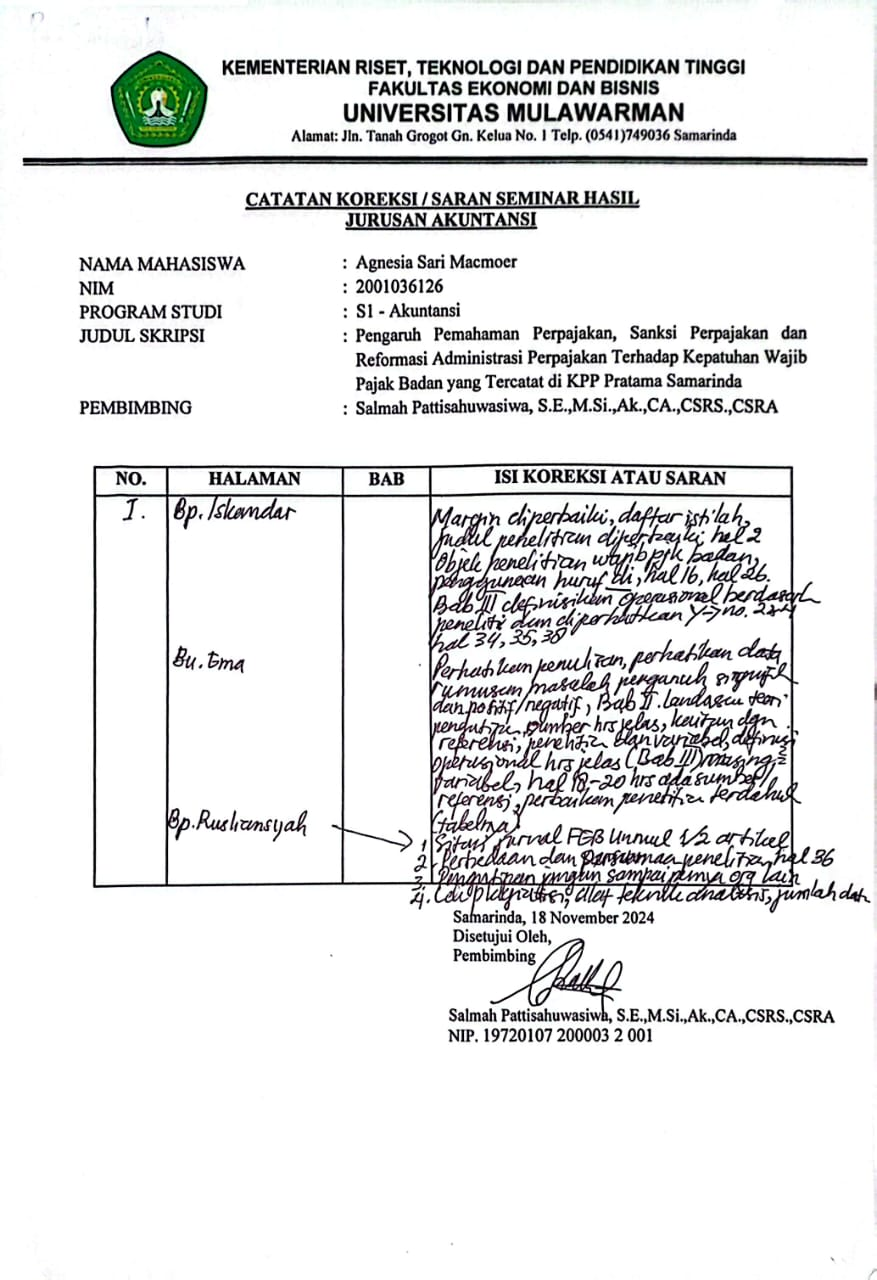 KEMENTERIAN RISET, TEKNOLOGI DAN PENDIDIKAN TINGGI
FAKULTAS EKONOMI DAN BISNIS
UNIVERSITAS MULAWARMAN
Alamat: Jln. Tanah Grogot Gn. Kelua No. 1 Telp. (0541)749036 Samarinda
CATATAN KOREKSI / SARAN SEMINAR HASIL
JURUSAN AKUNTANSI
NAMA MAHASISWA : Agnesia Sari Macmoer
NIM : 2001036126
PROGRAM STUDI : S1 - Akuntansi
JUDUL SKRIPSI : Pengaruh Pemahaman Perpajakan, Sanksi Perpajakan dan
Reformasi Administrasi Perpajakan Terhadap Kepatuhan Wajib
Pajak Badan yang Tercatat di KPP Pratama Samarinda
PEMBIMBING : Salmah Pattisahuwasiwa, S.E.,M.Si.,Ak.,CA.,CSRS.,CSRA
NO. HALAMAN BAB ISI KOREKSI ATAU SARAN
I. Bp. Iskandar Margin diperbaiki, daftar istilah,
judul penelitian diperbaiki hal 2
Objek penelitian badan,
penggunaan huruf di, hal 16, hal 26.
Bab III definisikan operasional
peneliti dan Y → no.
hal 34, 35, 38
Bu. Erna Perhatikan penulisan, perhatikan data
rumusan masalah pengaruh
dan positif/negatif, Bab II. landasan teori
sumber hrs jelas, dgn
referensi, penelitian dan variabel, definisi
operasional hrs jelas (Bab III) masing2
variabel, hal 18-20 hrs ada sumber/
referensi, perbaikan penelitian terdahulu
(tabelnya)
Bp. Rusliansyah 1. Sitasi jurnal FEB Unmul 1/2 artikel
2. Perbedaan dan persamaan penelitian hal 36
3. Pengutipan jangan sampai org lain
4. Cek plagiasi, alat teknik analisis, jumlah data
Samarinda, 18 November 2024
Disetujui Oleh,
Pembimbing
Salmah Pattisahuwasiwa, S.E.,M.Si.,Ak.,CA.,CSRS.,CSRA
NIP. 19720107 200003 2 001